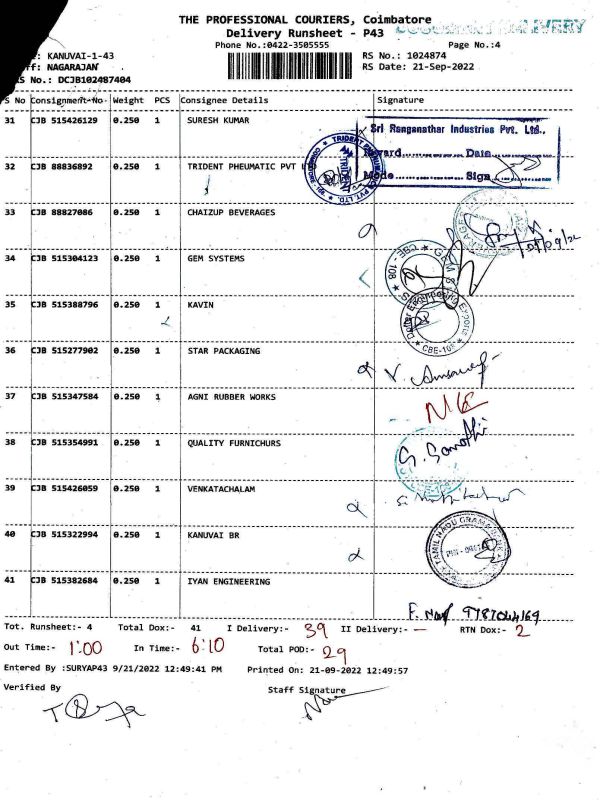 THE PROFESSIONAL COURIERS, Coimbatore
Delivery Runsheet - P43
Phone No.:0422-3505555 Page No.:4
: KANUVAI-1-43 RS No.: 1024874
ff: NAGARAJAN RS Date: 21-Sep-2022
AS No.: DCJB102487404
S No Consignment No Weight PCS Consignee Details Signature
31 CJB 515426129 0.250 1 SURESH KUMAR
Sri Ranganathar Industries Pvt. Ltd.,
Inward Date
Mode Sign
32 CJB 88836892 0.250 1 TRIDENT PHEUMATIC PVT
TRIDENT
33 CJB 88827086 0.250 1 CHAIZUP BEVERAGES
34 CJB 515304123 0.250 1 GEM SYSTEMS
CBE - 108
35 CJB 515388796 0.250 1 KAVIN
CBE-108
36 CJB 515277902 0.250 1 STAR PACKAGING
37 CJB 515347584 0.250 1 AGNI RUBBER WORKS
38 CJB 515354991 0.250 1 QUALITY FURNICHURS
39 CJB 515426059 0.250 1 VENKATACHALAM
40 CJB 515322994 0.250 1 KANUVAI BR
TAMIL NADU GRAMA BANK
41 CJB 515382684 0.250 1 IYAN ENGINEERING
9787044169
Tot. Runsheet:- 4 Total Dox:- 41 I Delivery:- 39 II Delivery:- — RTN Dox:- 2
Out Time:- 1:00 In Time:- 6:10 Total POD:- 29
Entered By :SURYAP43 9/21/2022 12:49:41 PM Printed On: 21-09-2022 12:49:57
Verified By Staff Signature